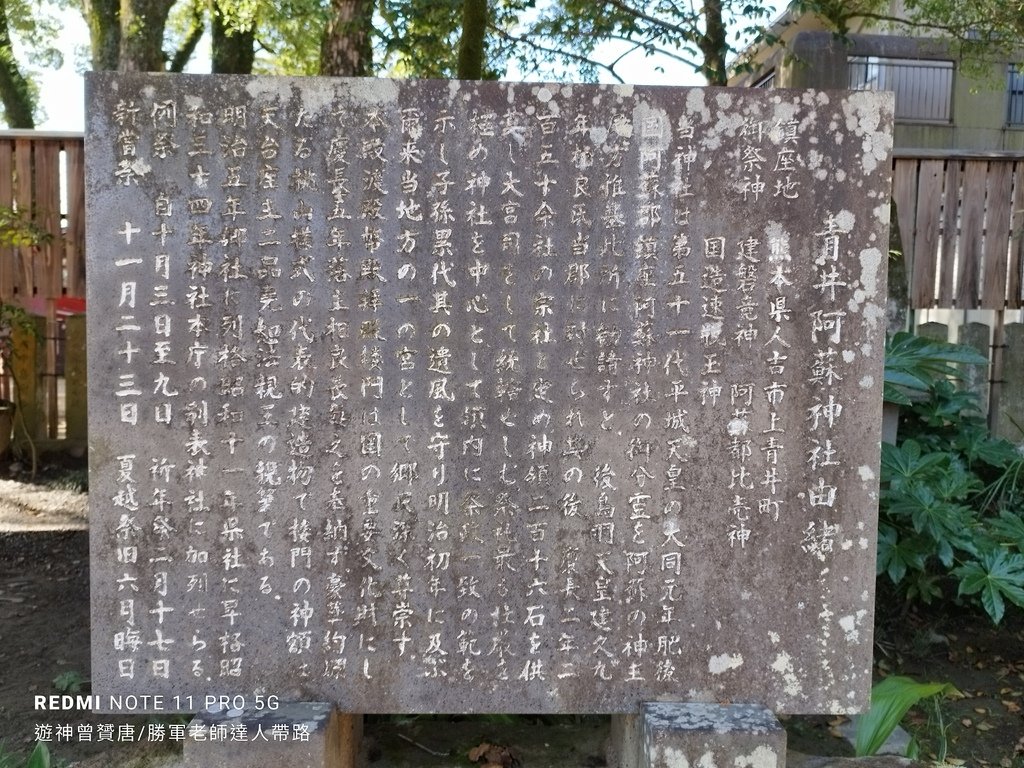 青井阿蘇神社由緒
鎮座地 熊本県人吉市上青井町
御祭神 建磐竜神 阿蘇都比売神
国造速瓶玉神
当神社は第五十一代平城天皇の大同元年肥後
国阿蘇郡鎮座阿蘇神社の御分霊を阿蘇の神主
惟基此所に勧請すと、後鳥羽天皇建久九
年相良氏当郡に封せられ其の後 慶長二年二
百五十余社の宗社と定め神領二百十六石を供
し大宮司をして統轄せしむ祭祀最も荘厳を
極め神社を中心として領内に祭政一致の範を
示し子孫累代其の遺風を守り明治初年に及ぶ
爾来当地方の一の宮として郷民深く尊崇す、
本殿渡殿幣殿拝殿楼門は国の重要文化財にし
て慶長
たる桃山様式の代表的建造物で楼門の神額は
天台座主二品堯恕法親王の親筆である、
明治五年郷社に列格昭和十一年県社に昇格昭
和三十四年神社本庁の別表神社に加列せらる、
例祭 自十月三日至九日 祈年祭二月十七日
新嘗祭 十一月二十三日 夏越祭旧六月晦日
REDMI NOTE 11 PRO 5G
遊神曾贇唐/勝軍老師達人帶路